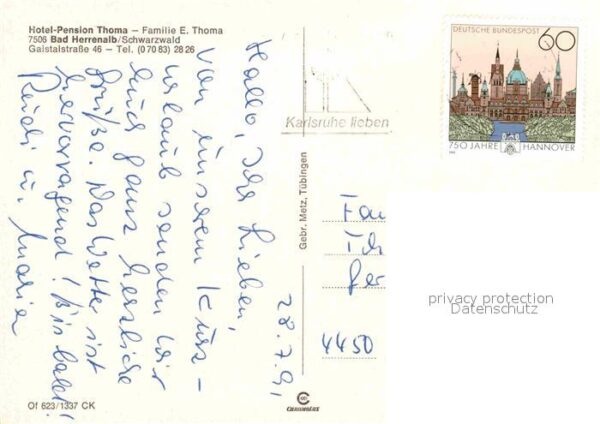 Hotel-Pension Thoma – Familie E. Thoma
7506 Bad Herrenalb/Schwarzwald
Gaistalstraße 46 – Tel. (0 70 83) 28 26
Hallo, Ihr Lieben,
von unserem Kurz-
urlaub senden wir
Euch ganz herzliche
Grüße. Das Wetter ist
hervorragend! Bis bald!
Heidi u.
28.7.91
Karlsruhe lieben
DEUTSCHE BUNDESPOST 60
750 JAHRE HANNOVER
Gebr. Metz, Tübingen
Fam
4450
privacy protection
Datenschutz
Of 623/1337 CK